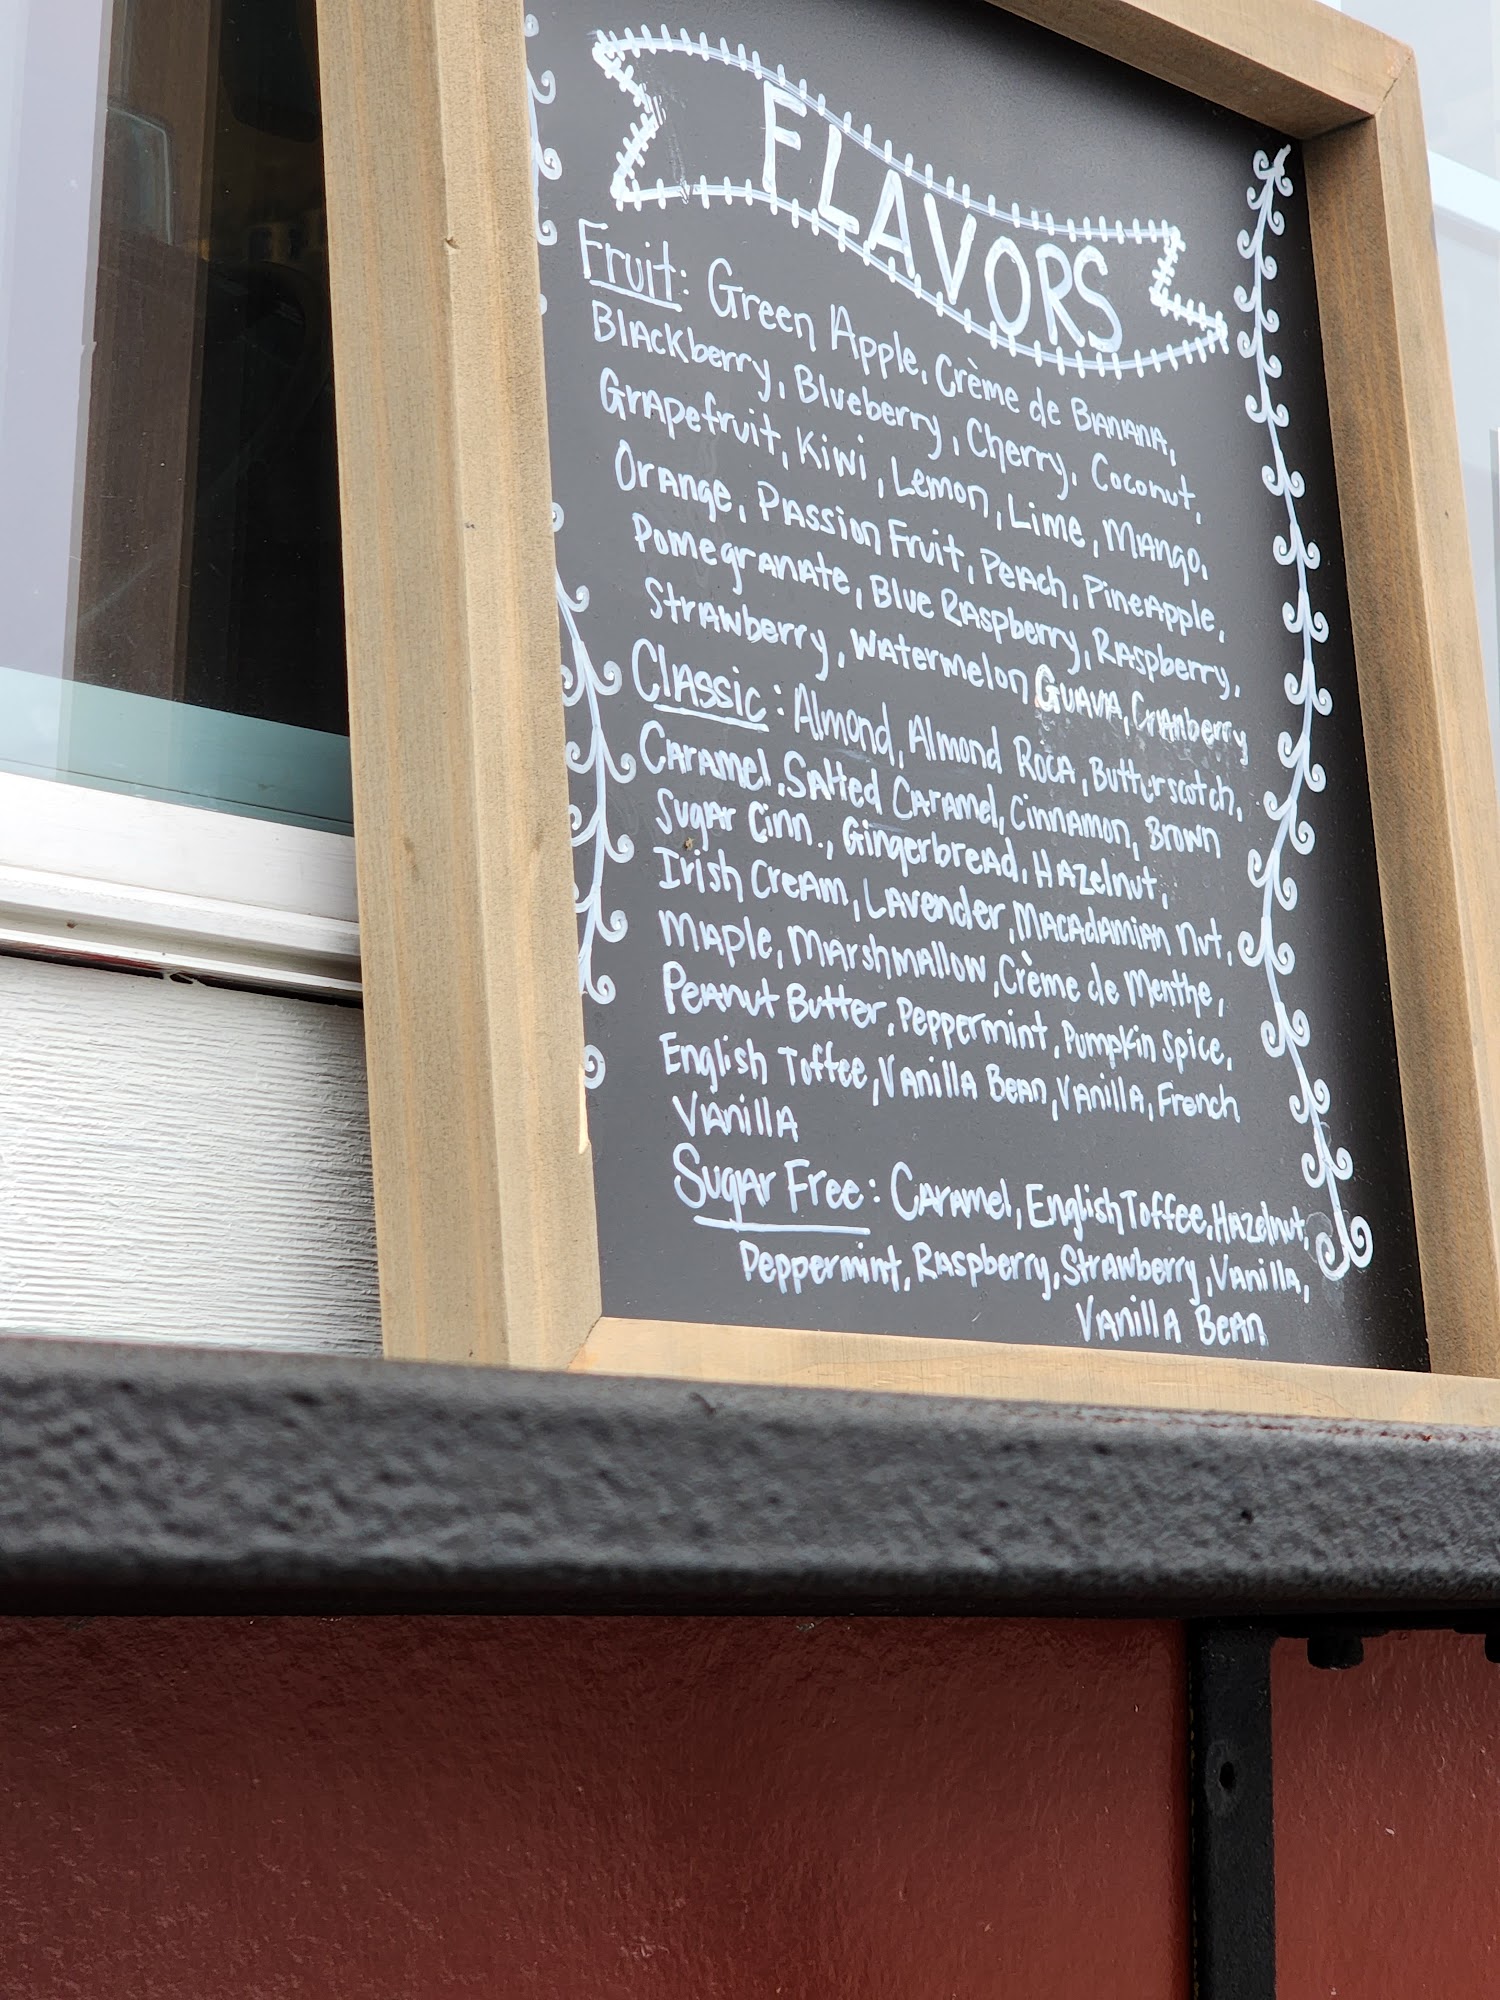 FLAVORS
Fruit: Green Apple, Crème de Banana,
Blackberry, Blueberry, Cherry, Coconut,
Grapefruit, Kiwi, Lemon, Lime, Mango,
Orange, Passion Fruit, Peach, Pineapple,
Pomegranate, Blue Raspberry, Raspberry,
Strawberry, Watermelon Guava, Cranberry
Classic: Almond, Almond Roca, Butterscotch,
Caramel, Salted Caramel, Cinnamon, Brown
Sugar Cinn., Gingerbread, Hazelnut,
Irish Cream, Lavender, Macadamian Nut,
Maple, Marshmallow, Crème de Menthe,
Peanut Butter, Peppermint, Pumpkin Spice,
English Toffee, Vanilla Bean, Vanilla, French
Vanilla
Sugar Free: Caramel, English Toffee, Hazelnut,
Peppermint, Raspberry, Strawberry, Vanilla,
Vanilla Bean